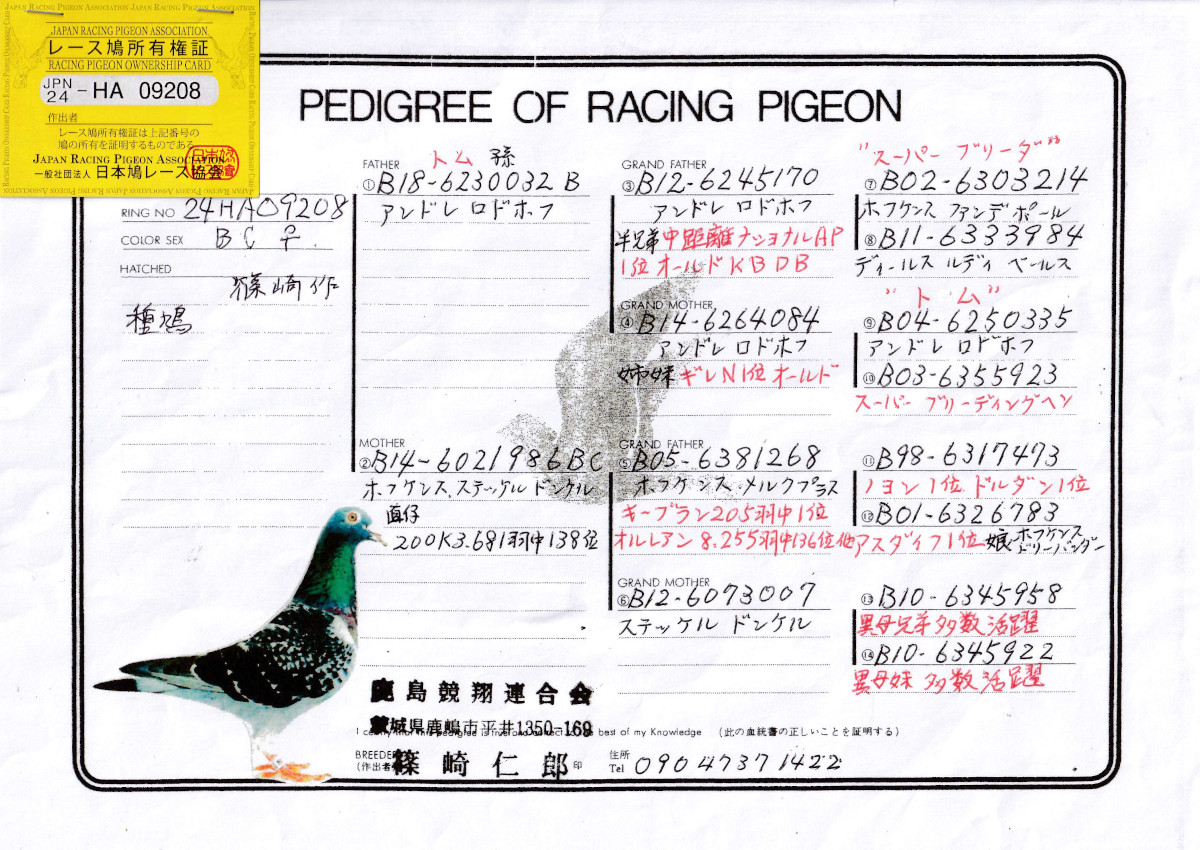 JAPAN RACING PIGEON ASSOCIATION
レース鳩所有権証
RACING PIGEON OWNERSHIP CARD
JPN
24 - HA 09208
作出者
レース鳩所有権証は上記番号の
鳩の所有を証明するものである
JAPAN RACING PIGEON ASSOCIATION
一般社団法人 日本鳩レース協会
PEDIGREE OF RACING PIGEON
RING NO 24HA09208
COLOR SEX B C ♀.
HATCHED
篠崎作
種鳩
FATHER トム 孫
①B18-6230032 B
アンドレ ロドホフ
MOTHER
②B14-6021986BC
ホフケンス.ステッケル ドンケル
直仔
200K3.681羽中138位
GRAND FATHER
③B12-6245170
アンドレ ロドホフ
半兄弟 中距離ナショナルAP
1位オールドKBDB
GRAND MOTHER
④B14-6264084
アンドレ ロドホフ
姉妹 ギレN1位オールド
GRAND FATHER
⑤B05-6381268
ホフケンス・メルクプラス
キーブラン205羽中1位
オルレアン8.255羽中136位他
GRAND MOTHER
⑥B12-6073007
ステッケル ドンケル
"スーパー ブリーダ"
⑦B02-6303214
ホフケンス ファンデポール
⑧B11-6333984
ディールス ルディ ベールス
"トム"
⑨B04-6250335
アンドレ ロドホフ
⑩B03-6355923
スーパー ブリーディングヘン
⑪B98-6317473
ノヨン1位.ドルダン1位
⑫B01-6326783
アスダイフ1位 娘 ホフケンス
ドリーバンダー
⑬B10-6345958
異母兄弟多数活躍
⑭B10-6345922
異母妹 多数活躍
鹿島競翔連合会
茨城県鹿嶋市平井1350-169
best of my Knowledge (此の血統書の正しいことを証明する)
BREEDER
(作出者) 篠崎仁郎 印
住所
Tel 09047371422